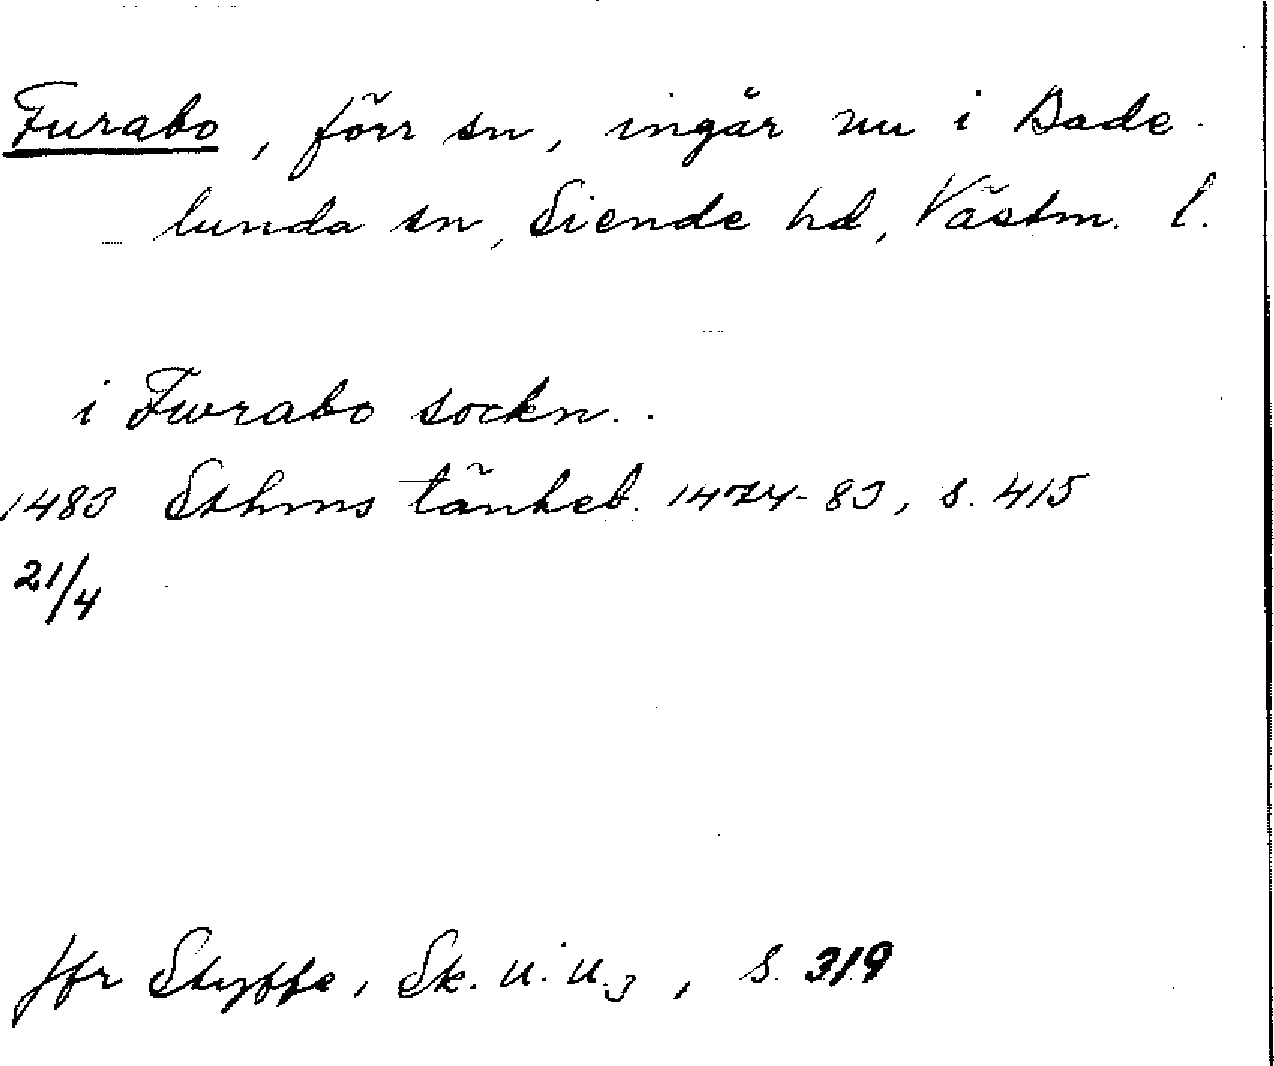 Furabo, förr sn, ingår nu i Bade-
lunda sn, Siende hd, Västm. l.
i Fwrabo sockn..
1483 Sthms tänkeb. 1474-83, s. 415
21/4
Jfr Styffe, Sk. u. u.3, s. 319